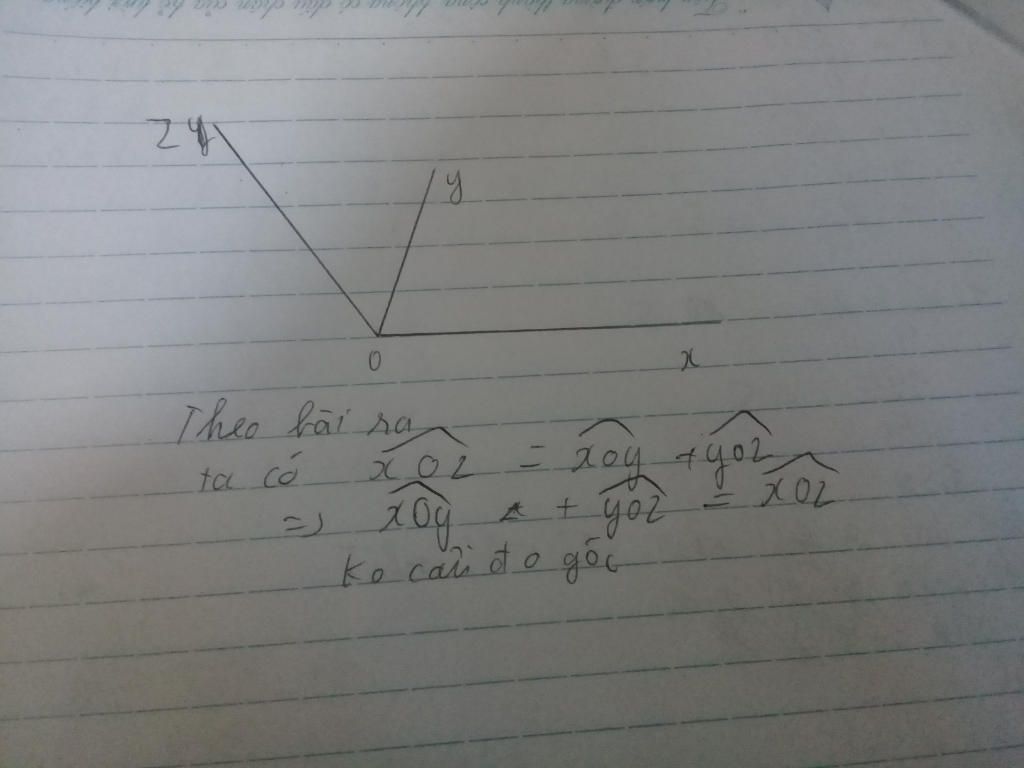 z y
y
O
x
Theo bài ra
ta có xOz = xOy + yOz
=> xOy + yOz = xOz
Ko cần đo góc